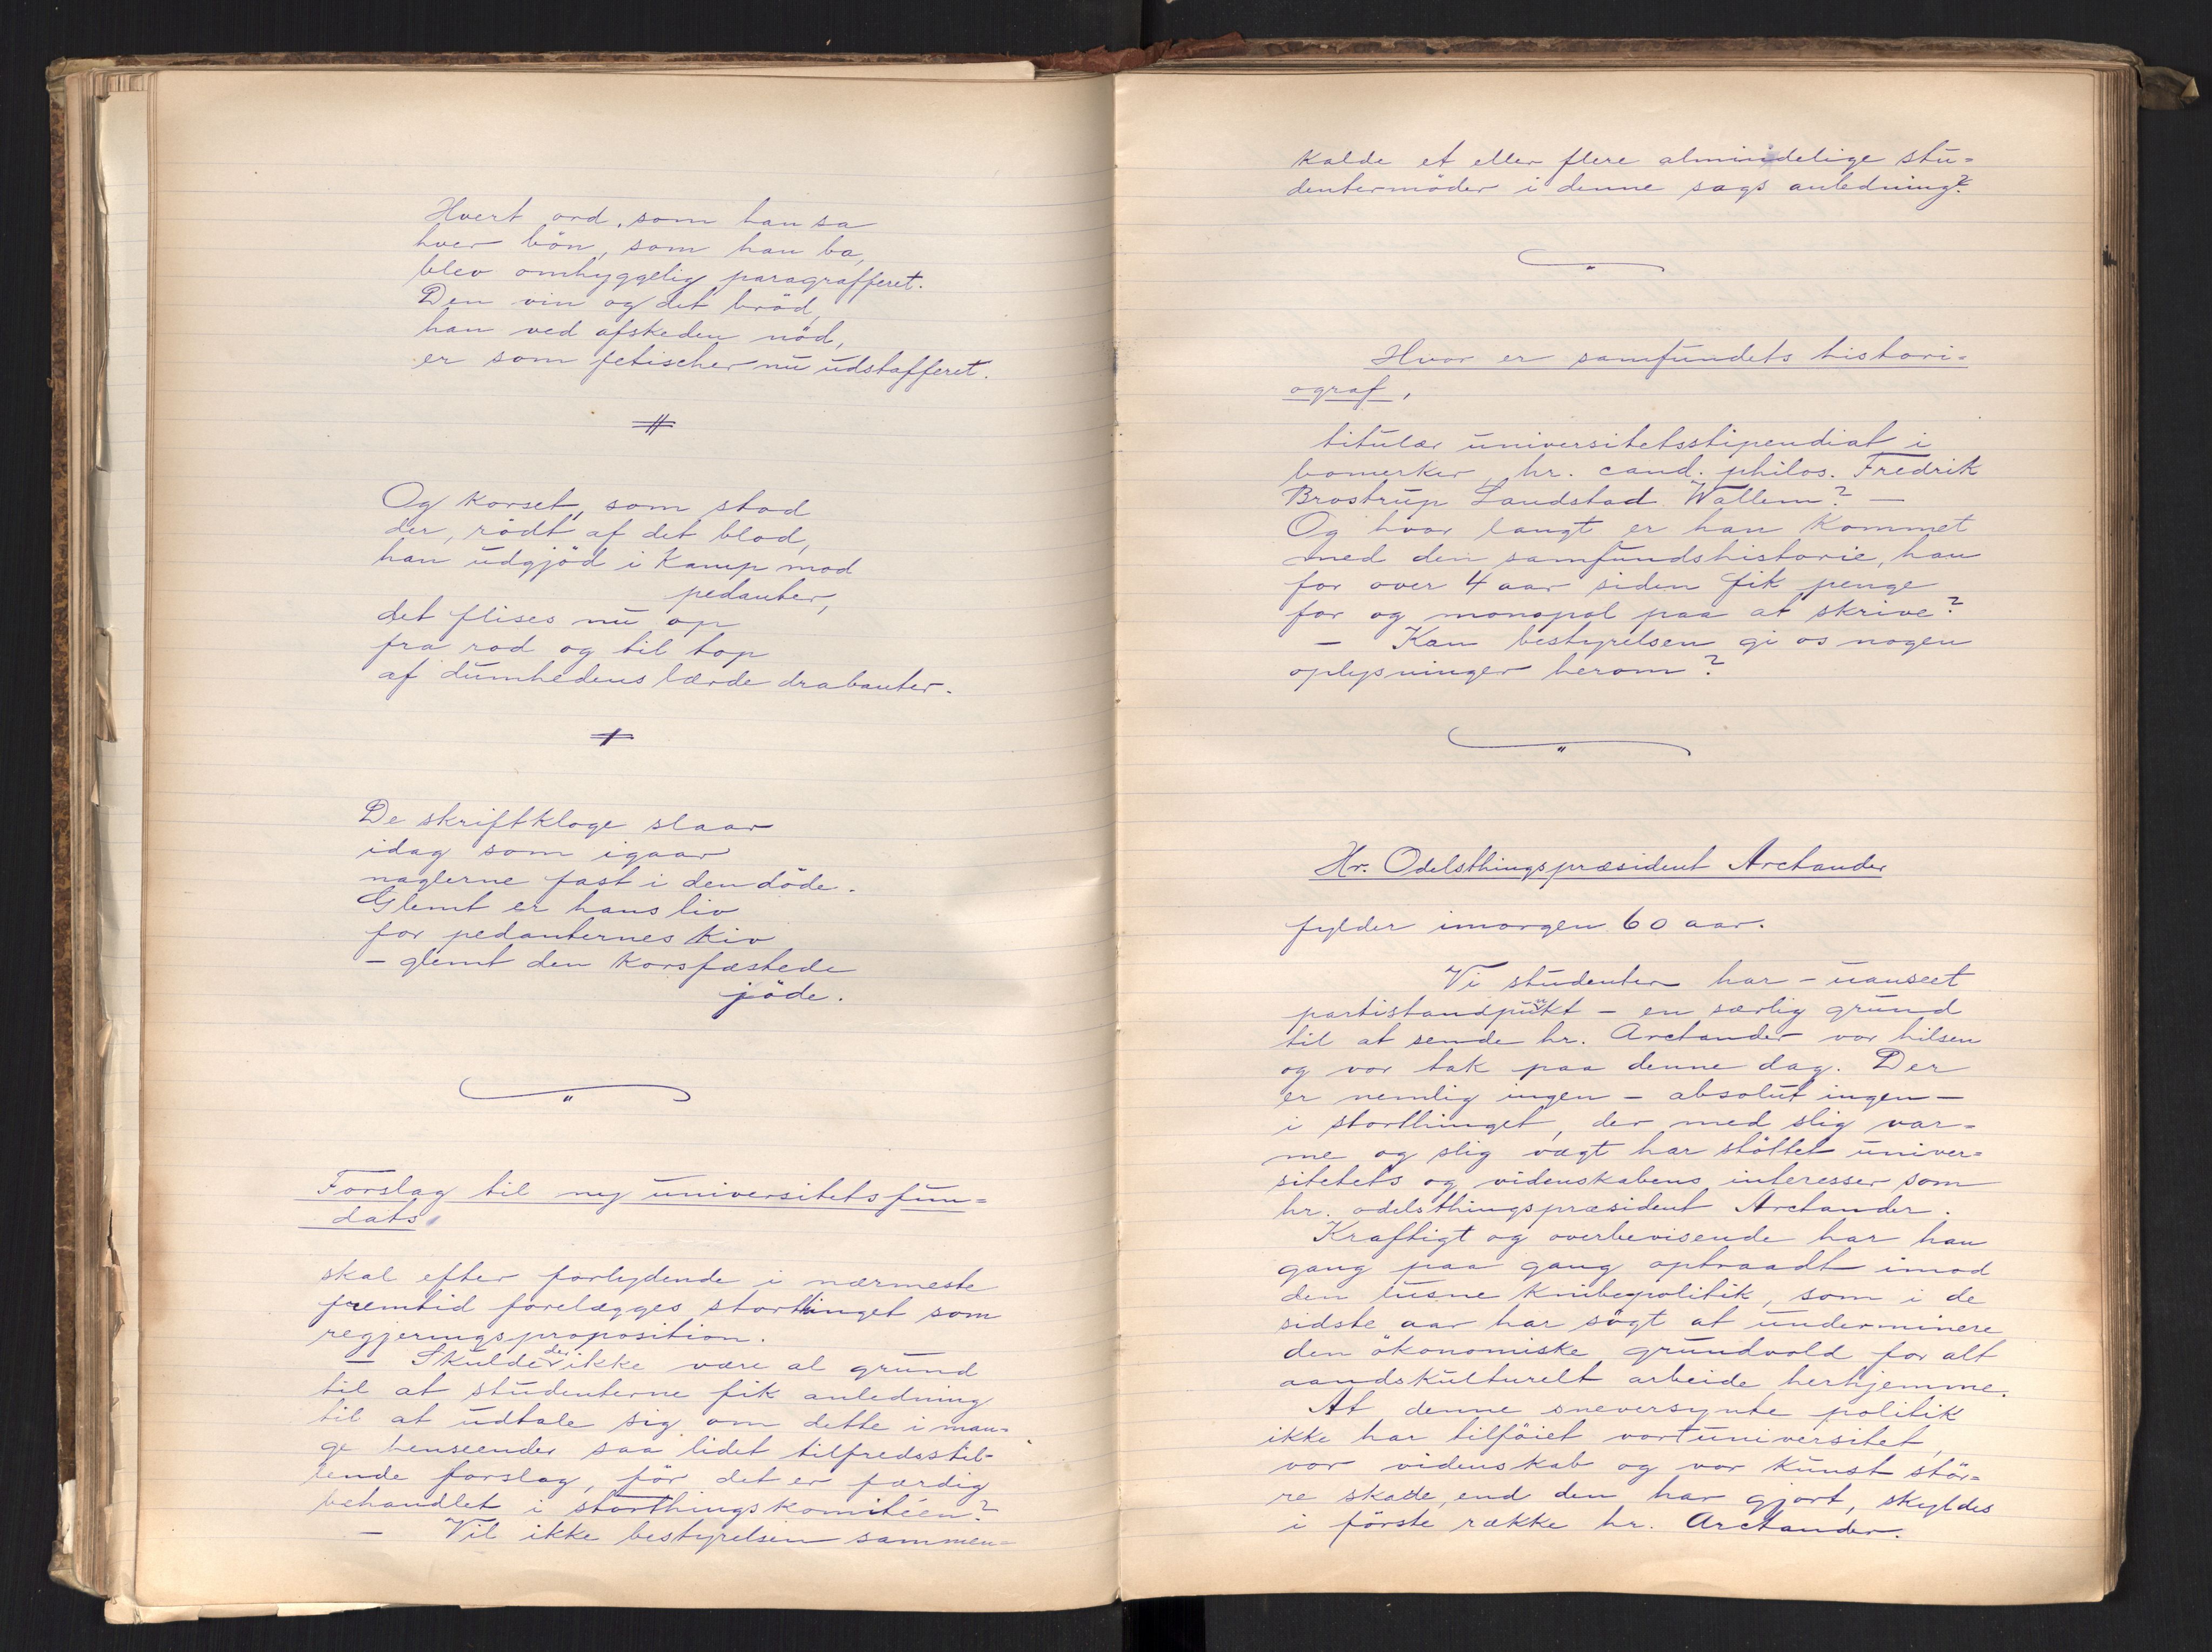 Hvert ord, som han sa
hver bön, som han ba,
blev omhyggelig paragrafferet.
Den vin og det bröd,
han ved afskeden nöd,
er som fetischer nu udstafferet.
Og korset, som stod
der, rödt af det blod,
han udgjöd i kamp mod
pedanter,
det flises nu op
fra rod og til top
af dumhedens lærde drabanter.
De skriftkloge slaar
idag som igaar
naglerne fast i den döde.
Glemt er hans liv
for pedanternes kiv
– glemt den korsfæstede
jöde.
Forslag til ny universitetsfun=
dats
skal efter forlydende i nærmeste
fremtid forelægges storthinget som
regjeringsproposition.
– Skulde der ikke være al grund
til at studenterne fik anledning
til at udtale sig om dette i man=
ge henseender saa lidet tilfredsstil=
lende forslag, för det er færdig
behandlet i storthingskomitéen?
– Vil ikke bestyrelsen sammen=
kalde et eller flere almindelige stu=
dentermöder i denne sags anledning?
Hvor er samfundets histori=
ograf,
titulær universitetsstipendiat i
bomerker, hr. cand. philos. Fredrik
Brostrup Landstad Wallem? –
Og hvor langt er han kommet
med den samfundshistorie, han
for over 4 aar siden fik penge
for og monopol paa at skrive?
– Kan bestyrelsen gi os nogen
oplysninger herom?
Hr. Odelsthingspræsident Arctander
fylder imorgen 60 aar.
Vi studenter har – uanseet
partistandpunkt – en særlig grund
til at sende hr. Arctander vor hilsen
og vor tak paa denne dag. Der
er nemlig ingen – absolut ingen –
i storthinget, der med slig var=
me og slig vægt har stöttet univer=
sitetets og videnskabens interesser som
hr. odelsthingspræsident Arctander.
Kraftigt og overbevisende har han
gang paa gang optraadt imod
den lusne knibepolitik, som i de
sidste aar har sögt at underminere
den ökonomiske grundvold for alt
aandskulturelt arbeide herhjemme.
At denne sneversynte politik
ikke har tilföiet vort universitet,
vor videnskab og vor kunst stör=
re skade, end den har gjort, skyldes
i förste række hr. Arctander.